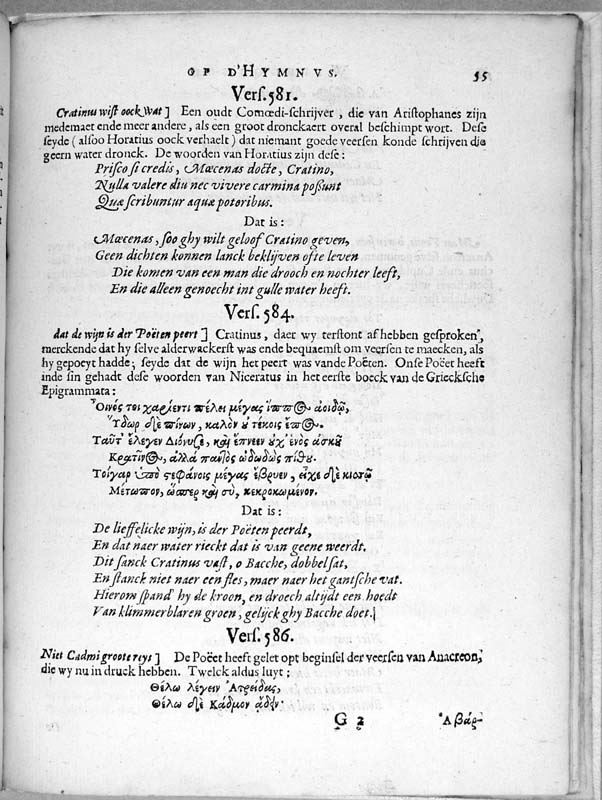 OP D'HYMNVS. 55
Vers. 581.
Cratinus wist oock wat] Een oudt Comœdi-schrijver, die van Aristophanes zijn
medemaet ende meer andere, als een groot dronckaert overal beschimpt wort. Dese
seyde (alsoo Horatius oock verhaelt) dat niemant goede veersen konde schrijven die
geern water dronck. De woorden van Horatius zijn dese:
Prisco si credis, Mœcenas docte, Cratino,
Nulla valere diu nec vivere carmina possunt
Quæ scribuntur aquæ potoribus.
Dat is:
Mœcenas, soo ghy wilt geloof Cratino geven,
Geen dichten konnen lanck beklijven ofte leven
Die komen van een man die drooch en nochter leeft,
En die alleen genoecht int gulle water heeft.
Vers. 584.
dat de wijn is der Poëten peert] Cratinus, daer wy terstont af hebben gesproken,
merckende dat hy selve alderwackerst was ende bequaemst om veersen te maecken, als
hy gepoeyt hadde; seyde dat de wijn het peert was vande Poëten. Onse Poëet heeft
inde sin gehadt dese woorden van Niceratus in het eerste boeck van de Griecksche
Epigrammata:
Οἶνός τοι χαρίεντι πέλει μέγας ἵππος ἀοιδῷ,
Ὕδωρ δὲ πίνων, καλὸν οὐ τέκοις ἔπος.
Ταῦτ' ἔλεγεν Διόνυσε, καὶ ἔπνεεν οὐχ ἑνὸς ἀσκοῦ
Κρατῖνος, ἀλλὰ παντὸς ὠδωδὼς πίθου.
Τοίγαρ ὑπὸ στεφάνοις μέγας ἔβρυεν, εἶχε δὲ κιττῷ
Μέτωπον, ὥσπερ καὶ σὺ, κεκροκωμένον.
Dat is:
De lieffelicke wijn, is der Poëten peerdt,
En dat naer water rieckt dat is van geene weerdt.
Dit sanck Cratinus vast, o Bacche, dobbel sat,
En stanck niet naer een fles, maer naer het gantsche vat.
Hierom spand' hy de kroon, en droech altijdt een hoedt
Van klimmerblaren groen, gelijck ghy Bacche doet.
Vers. 586.
Niet Cadmi groote reys] De Poëet heeft gelet opt beginsel der veersen van Anacreon,
die wy nu in druck hebben. Twelck aldus luyt:
Θέλω λέγειν Ἀτρείδας,
Θέλω δὲ Κάδμον ᾄδειν·
G 2 Ἁ βάρ-